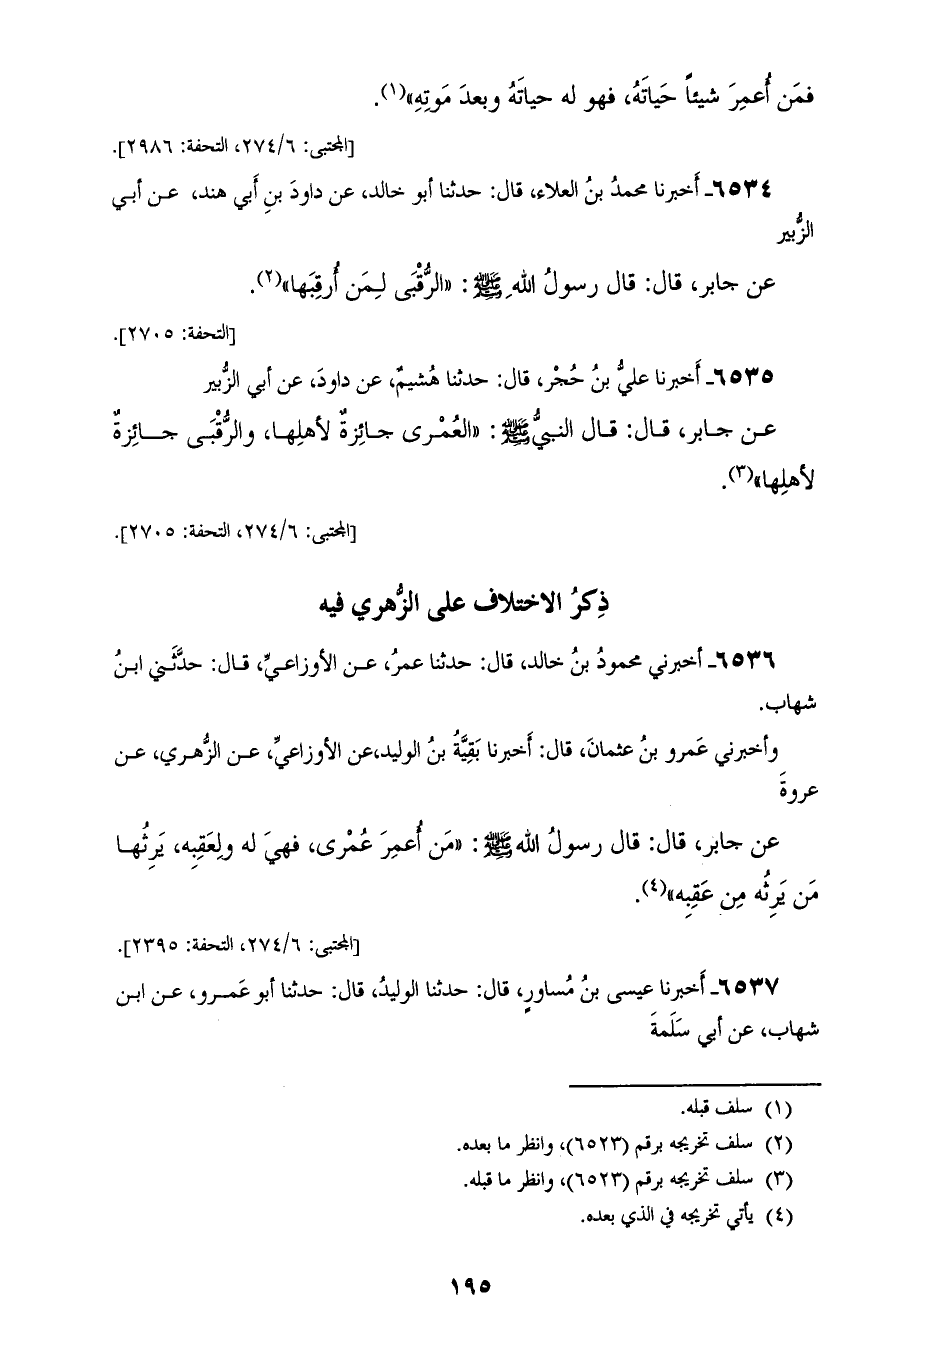 فمَن أُعمِرَ شيئاً حَياتَهُ، فهو له حياتَهُ وبعدَ مَوتِهِ»(١).
[المجتبى: ٢٧٤/٦، التحفة: ٢٩٨٦].
٦٥٣٤ـ أَخبرنا محمدُ بنُ العلاء، قال: حدثنا أبو خالد، عن داودَ بنِ أَبي هند، عـن أبـي
الزُّبير
عن جابر، قال: قال رسولُ اللهِ ﷺ: «الرُّقْبَى لـِمَن أُرقِبَها»(٢).
[التحفة: ٢٧٠٥].
٦٥٣٥ـ أَخبرنا عليُّ بنُ حُجْر، قال: حدثنا هُشيمٌ، عن داودَ، عن أبي الزُّبير
عـن جـابر، قـال: قـال النبيُّ ﷺ: «العُمْـرى جـائزةٌ لأهلِهـا، والرُّقْبَـى جـــائزةٌ
لأهلِها»(٣).
[المجتبى: ٢٧٤/٦، التحفة: ٢٧٠٥].
ذِكرُ الاختلاف على الزُّهري فيه
٦٥٣٦ـ أخبرني محمودُ بنُ خالد، قال: حدثنا عمرُ، عـن الأوزاعـيِّ، قـال: حدَّثَـني ابـنُ
شهاب.
وأخبرني عَمرو بنُ عثمانَ، قال: أَخبرنا بَقِيَّةُ بنُ الوليد،عن الأوزاعيِّ، عـن الزُّهـري، عـن
عروةَ
عن جابر، قال: قال رسولُ الله ﷺ: «مَن أُعمِرَ عُمْرى، فهيَ له ولِعَقِبِه، يَرِثُهـا
مَن يَرِثُه مِن عَقِبِه»(٤).
[المجتبى: ٢٧٤/٦، التحفة: ٢٣٩٥].
٦٥٣٧ـ أَخبرنا عيسى بنُ مُساورٍ، قال: حدثنا الوليدُ، قال: حدثنا أبو عَمـرو، عـن ابـن
شهاب، عن أبي سَلَمةَ
(١) سلف قبله.
(٢) سلف تخريجه برقم (٦٥٢٣)، وانظر ما بعده.
(٣) سلف تخريجه برقم (٦٥٢٣)، وانظر ما قبله.
(٤) يأتي تخريجه في الذي بعده.
١٩٥